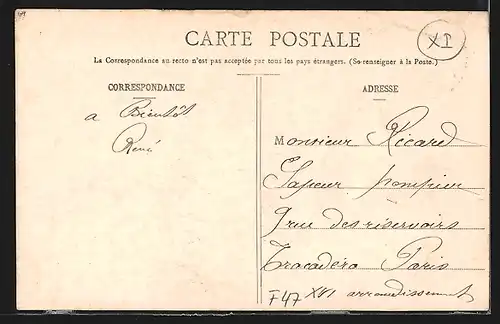 CARTE POSTALE
XI
La Correspondance au recto n'est pas acceptée par tous les pays étrangers. (Se renseigner à la Poste.)
CORRESPONDANCE
a Bientôt
René
ADRESSE
Monsieur Ricard
Sapeur pompier
9 rue des réservoirs
Trocadéro Paris
XVI arrondissement
F47